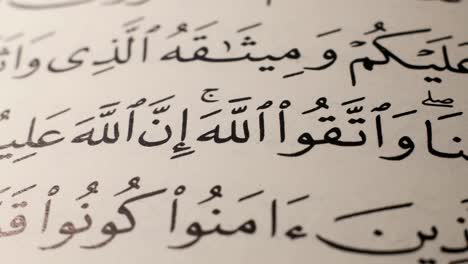 عَلَيْكُمْ وَمِيثَـٰقَهُ ٱلَّذِى وَاثَ
نَا ۖ وَٱتَّقُوا۟ ٱللَّهَ ۚ إِنَّ ٱللَّهَ عَلِيـ
ذِينَ ءَامَنُوا۟ كُونُوا۟ قَوَّ